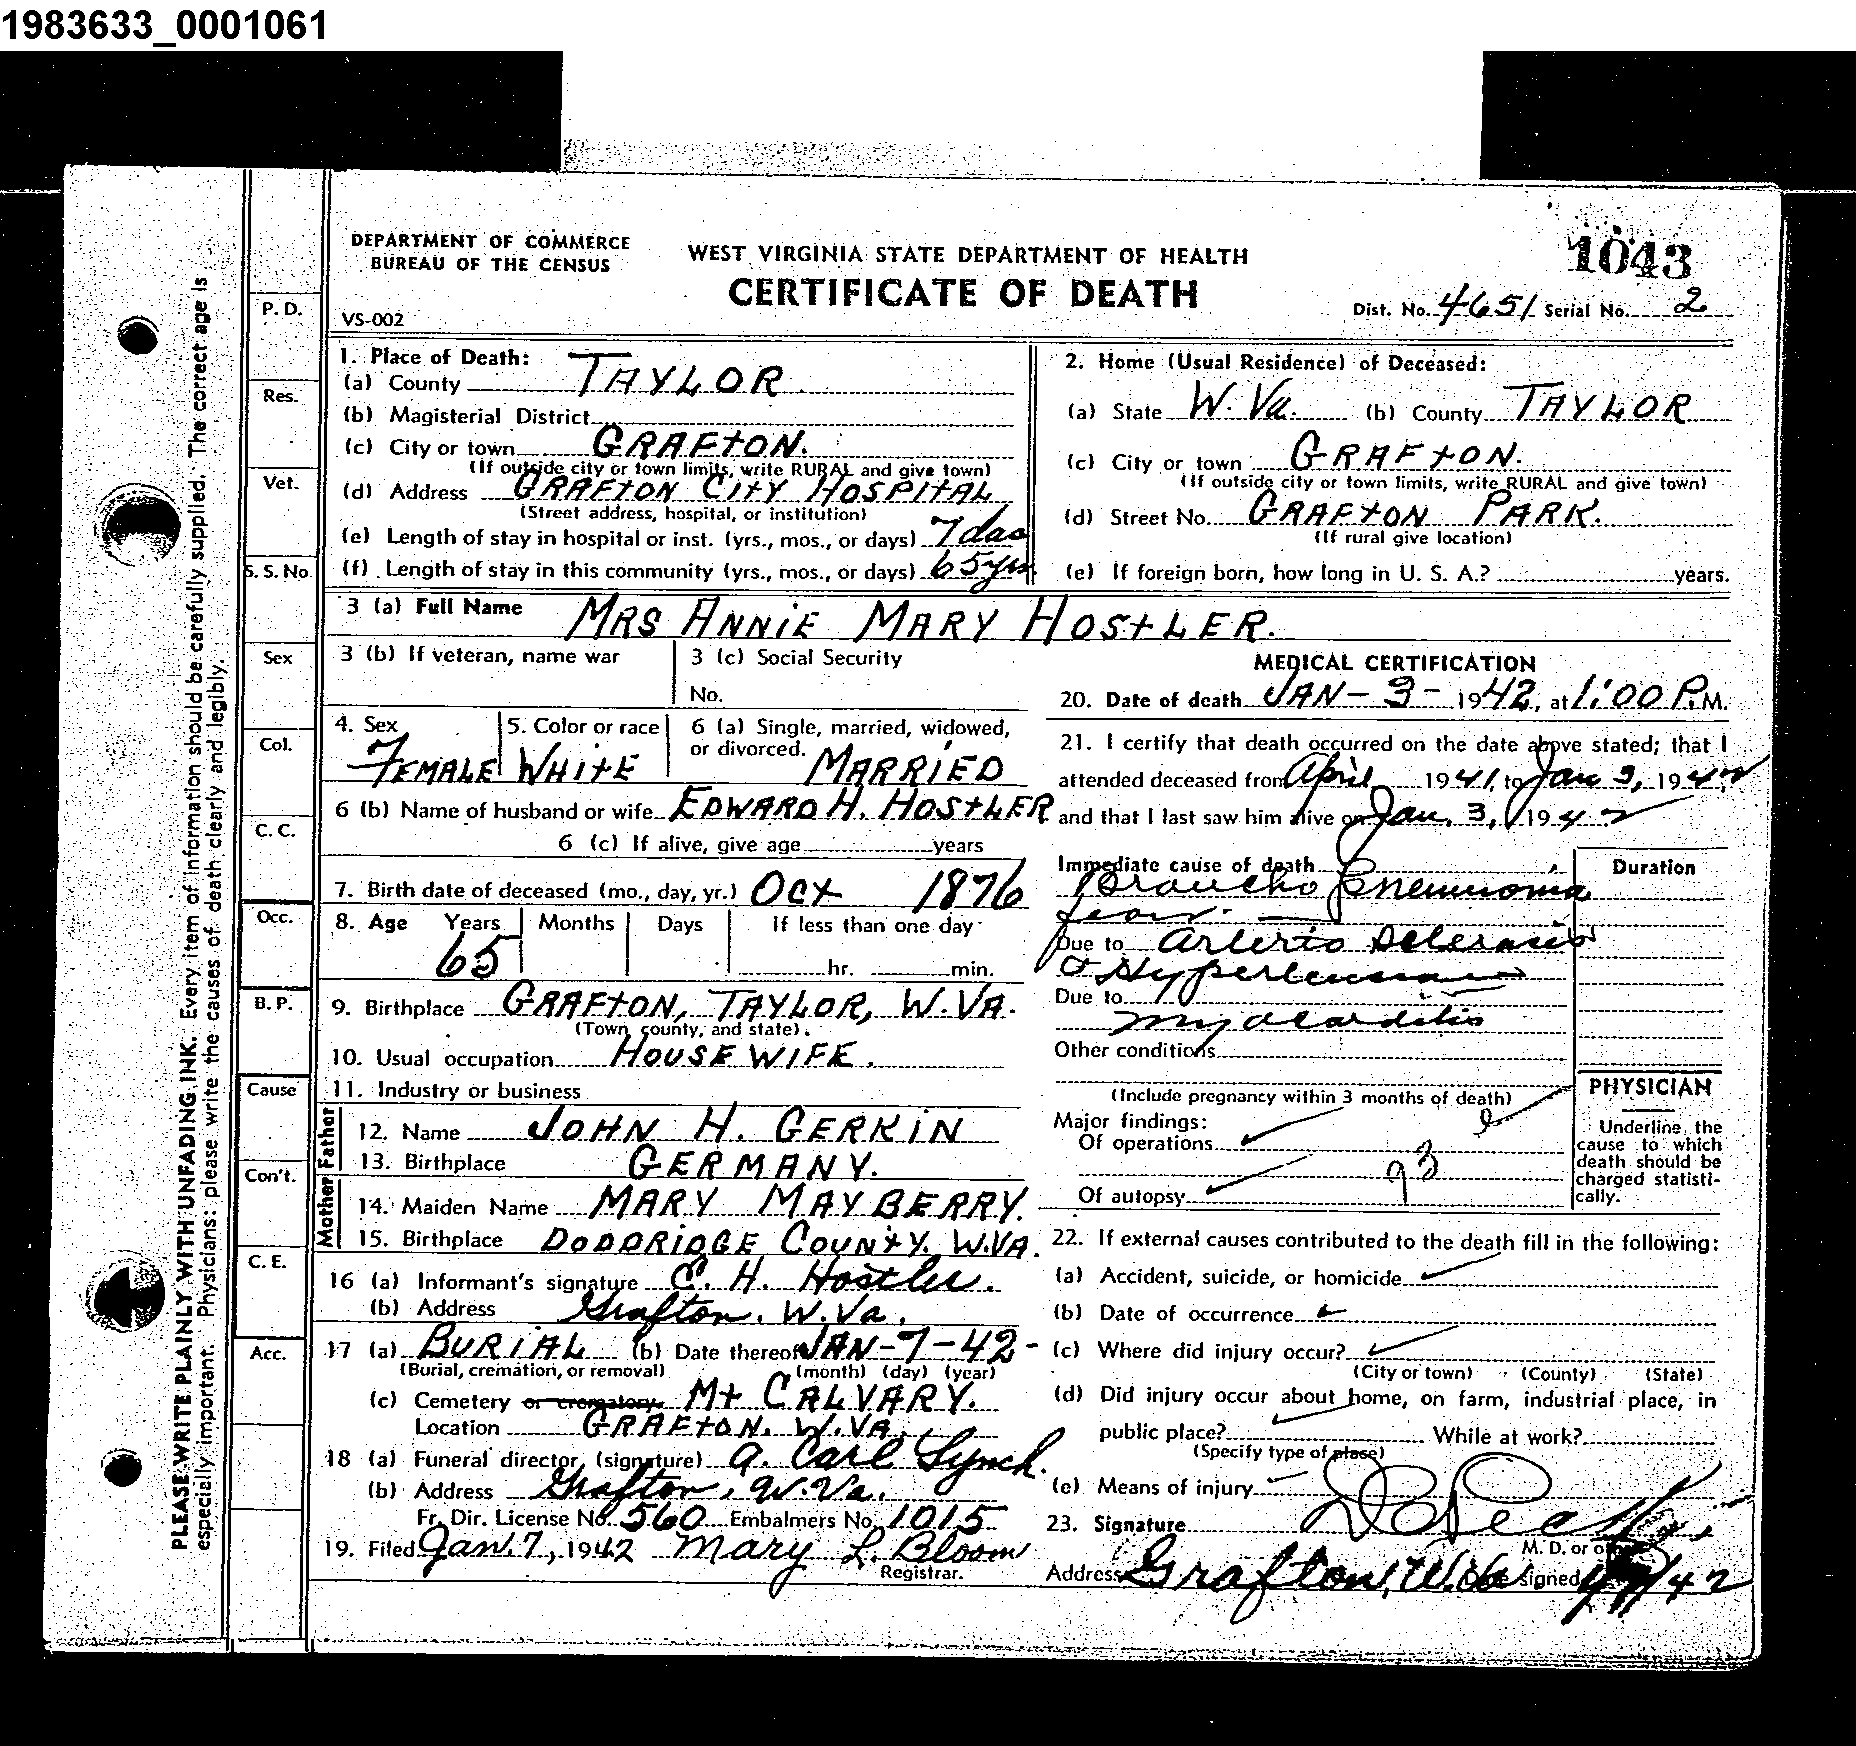 1983633_0001061
DEPARTMENT OF COMMERCE
BUREAU OF THE CENSUS
WEST VIRGINIA STATE DEPARTMENT OF HEALTH
CERTIFICATE OF DEATH
1043
VS-002
Dist. No. 4651 Serial No. 2
PLEASE WRITE PLAINLY WITH UNFADING INK. Every item of information should be carefully supplied. The correct age is
especially important. Physicians: please write the causes of death clearly and legibly.
P. D.
Res.
Vet.
S. S. No.
Sex
Col.
C. C.
Occ.
B. P.
Cause
Con't.
C. E.
Acc.
1. Place of Death:
(a) County TAYLOR
(b) Magisterial District
(c) City or town GRAFTON.
(If outside city or town limits, write RURAL and give town)
(d) Address GRAFTON CITY HOSPITAL
(Street address, hospital, or institution)
(e) Length of stay in hospital or inst. (yrs., mos., or days) 7 das
(f) Length of stay in this community (yrs., mos., or days) 65 yrs.
2. Home (Usual Residence) of Deceased:
(a) State W. Va. (b) County TAYLOR
(c) City or town GRAFTON.
(If outside city or town limits, write RURAL and give town)
(d) Street No. GRAFTON PARK.
(If rural give location)
(e) If foreign born, how long in U. S. A.? years.
3 (a) Full Name MRS ANNIE MARY HOSTLER.
3 (b) If veteran, name war
3 (c) Social Security
No.
4. Sex FEMALE
5. Color or race WHITE
6 (a) Single, married, widowed,
or divorced. MARRIED
6 (b) Name of husband or wife EDWARD H. HOSTLER
6 (c) If alive, give age years
7. Birth date of deceased (mo., day, yr.) OCT 1876
8. Age Years Months Days If less than one day
65 hr. min.
9. Birthplace GRAFTON, TAYLOR, W. VA.
(Town, county, and state)
10. Usual occupation HOUSEWIFE.
11. Industry or business
Father
12. Name JOHN H. GERKIN
13. Birthplace GERMANY.
Mother
14. Maiden Name MARY MAYBERRY.
15. Birthplace DODDRIDGE COUNTY. W. VA.
16 (a) Informant's signature E. H. Hostler.
(b) Address Grafton, W. Va.
17 (a) BURIAL (b) Date thereof JAN-7-42-
(Burial, cremation, or removal) (month) (day) (year)
(c) Cemetery or crematory MT CALVARY.
Location GRAFTON. W. VA.
18 (a) Funeral director, (signature) A. Carl Lynch.
(b) Address Grafton, W. Va.
Fr. Dir. License No. 560 Embalmers No. 1015
19. Filed Jan. 7, 1942 Mary L. Bloom
Registrar.
MEDICAL CERTIFICATION
20. Date of death JAN-3-1942, at 1:00 P.M.
21. I certify that death occurred on the date above stated; that I
attended deceased from April 1941, to Jan 3, 1942
and that I last saw him alive on Jan. 3, 1942
Immediate cause of death
Duration
Broncho Pneumonia
Due to Arterio Sclerosis
& Hypertension
Due to
Myocarditis
Other conditions
(Include pregnancy within 3 months of death)
Major findings:
Of operations
93
Of autopsy
PHYSICIAN
Underline the
cause to which
death should be
charged statisti-
cally.
22. If external causes contributed to the death fill in the following:
(a) Accident, suicide, or homicide
(b) Date of occurrence
(c) Where did injury occur?
(City or town) (County) (State)
(d) Did injury occur about home, on farm, industrial place, in
public place? While at work?
(Specify type of place)
(e) Means of injury
23. Signature
M. D. or
Address Grafton, W. Va. Date signed